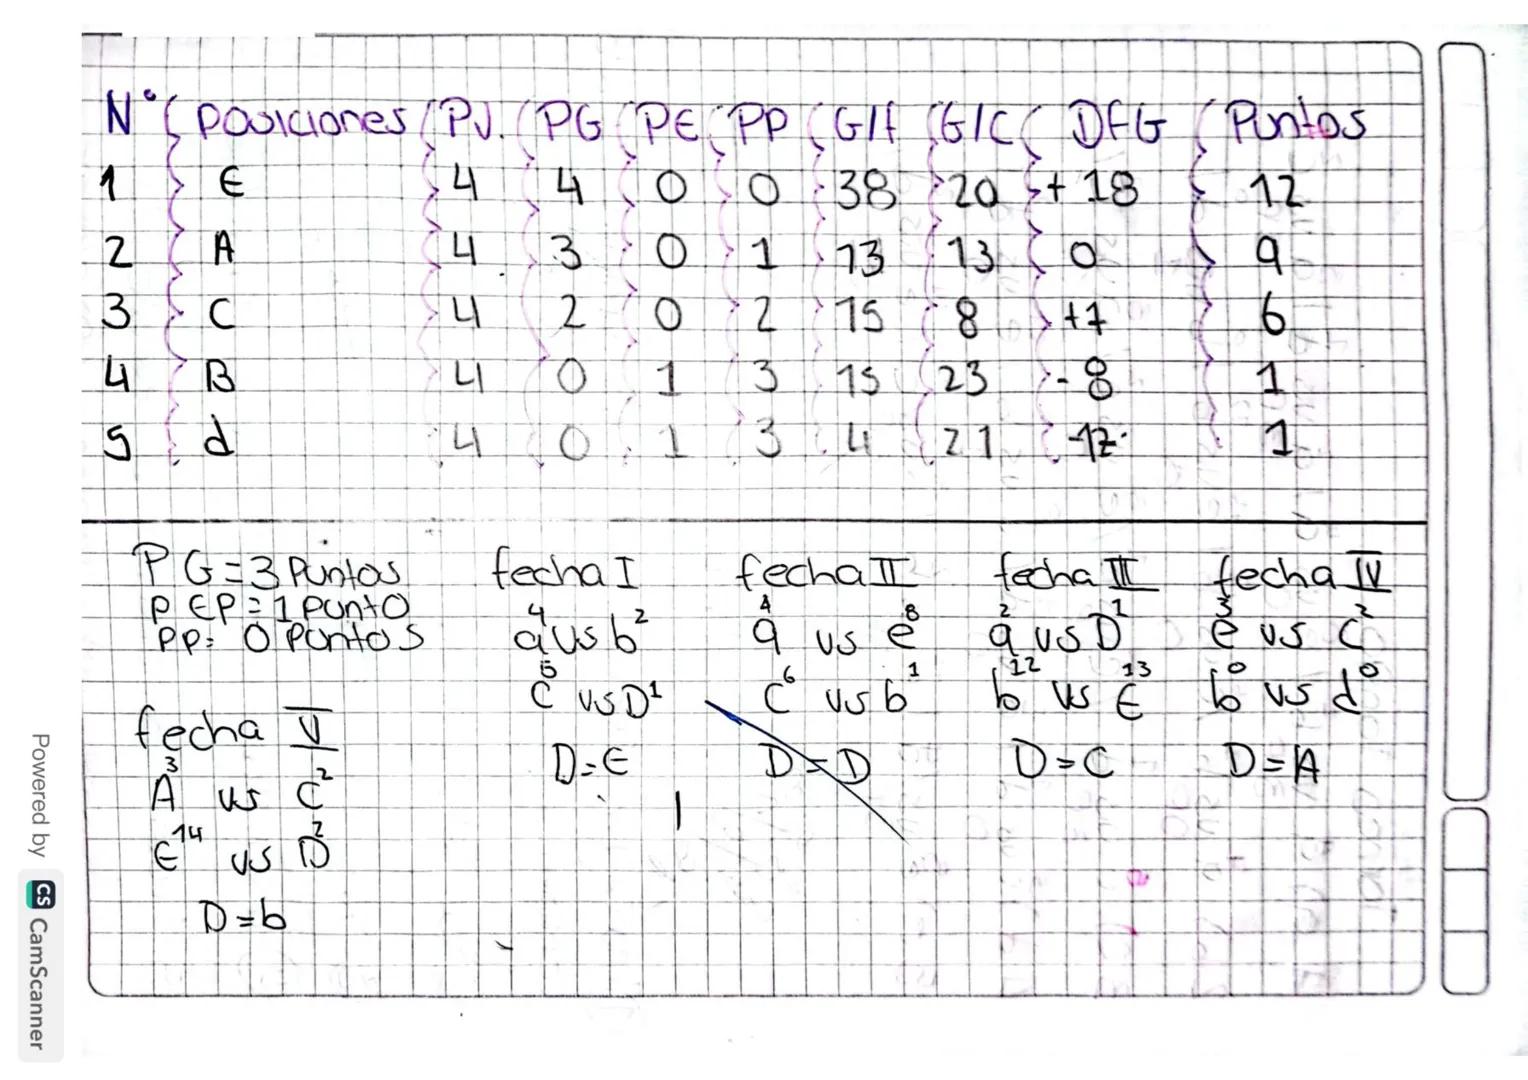 N° posiciones PJ. PG PE PP G/f G/C DFG Puntos
1 E 4 4 0 0 38 20 + 18 12
2 A 4 3 0 1 13 13 0 9
3 C 4 2 0 2 15 8 +7 6
4 B 4 0 1 3 15 23 - 8 1
5 d 4 0 1 3 4 21 -17 1
PG=3 Puntos
P EP=1 punto
PP= 0 Puntos
fecha I
a⁴ vs b²
c⁵ vs D¹
D=E
fecha II
a⁴ vs e⁸
C⁶ vs b¹
D=D
fecha III
a² vs D¹
b¹² vs E¹³
D=C
fecha IV
e³ vs C²
b⁰ vs d⁰
D=A
fecha V
A³ vs C²
E¹⁴ vs D²
D=b
Powered by CS CamScanner